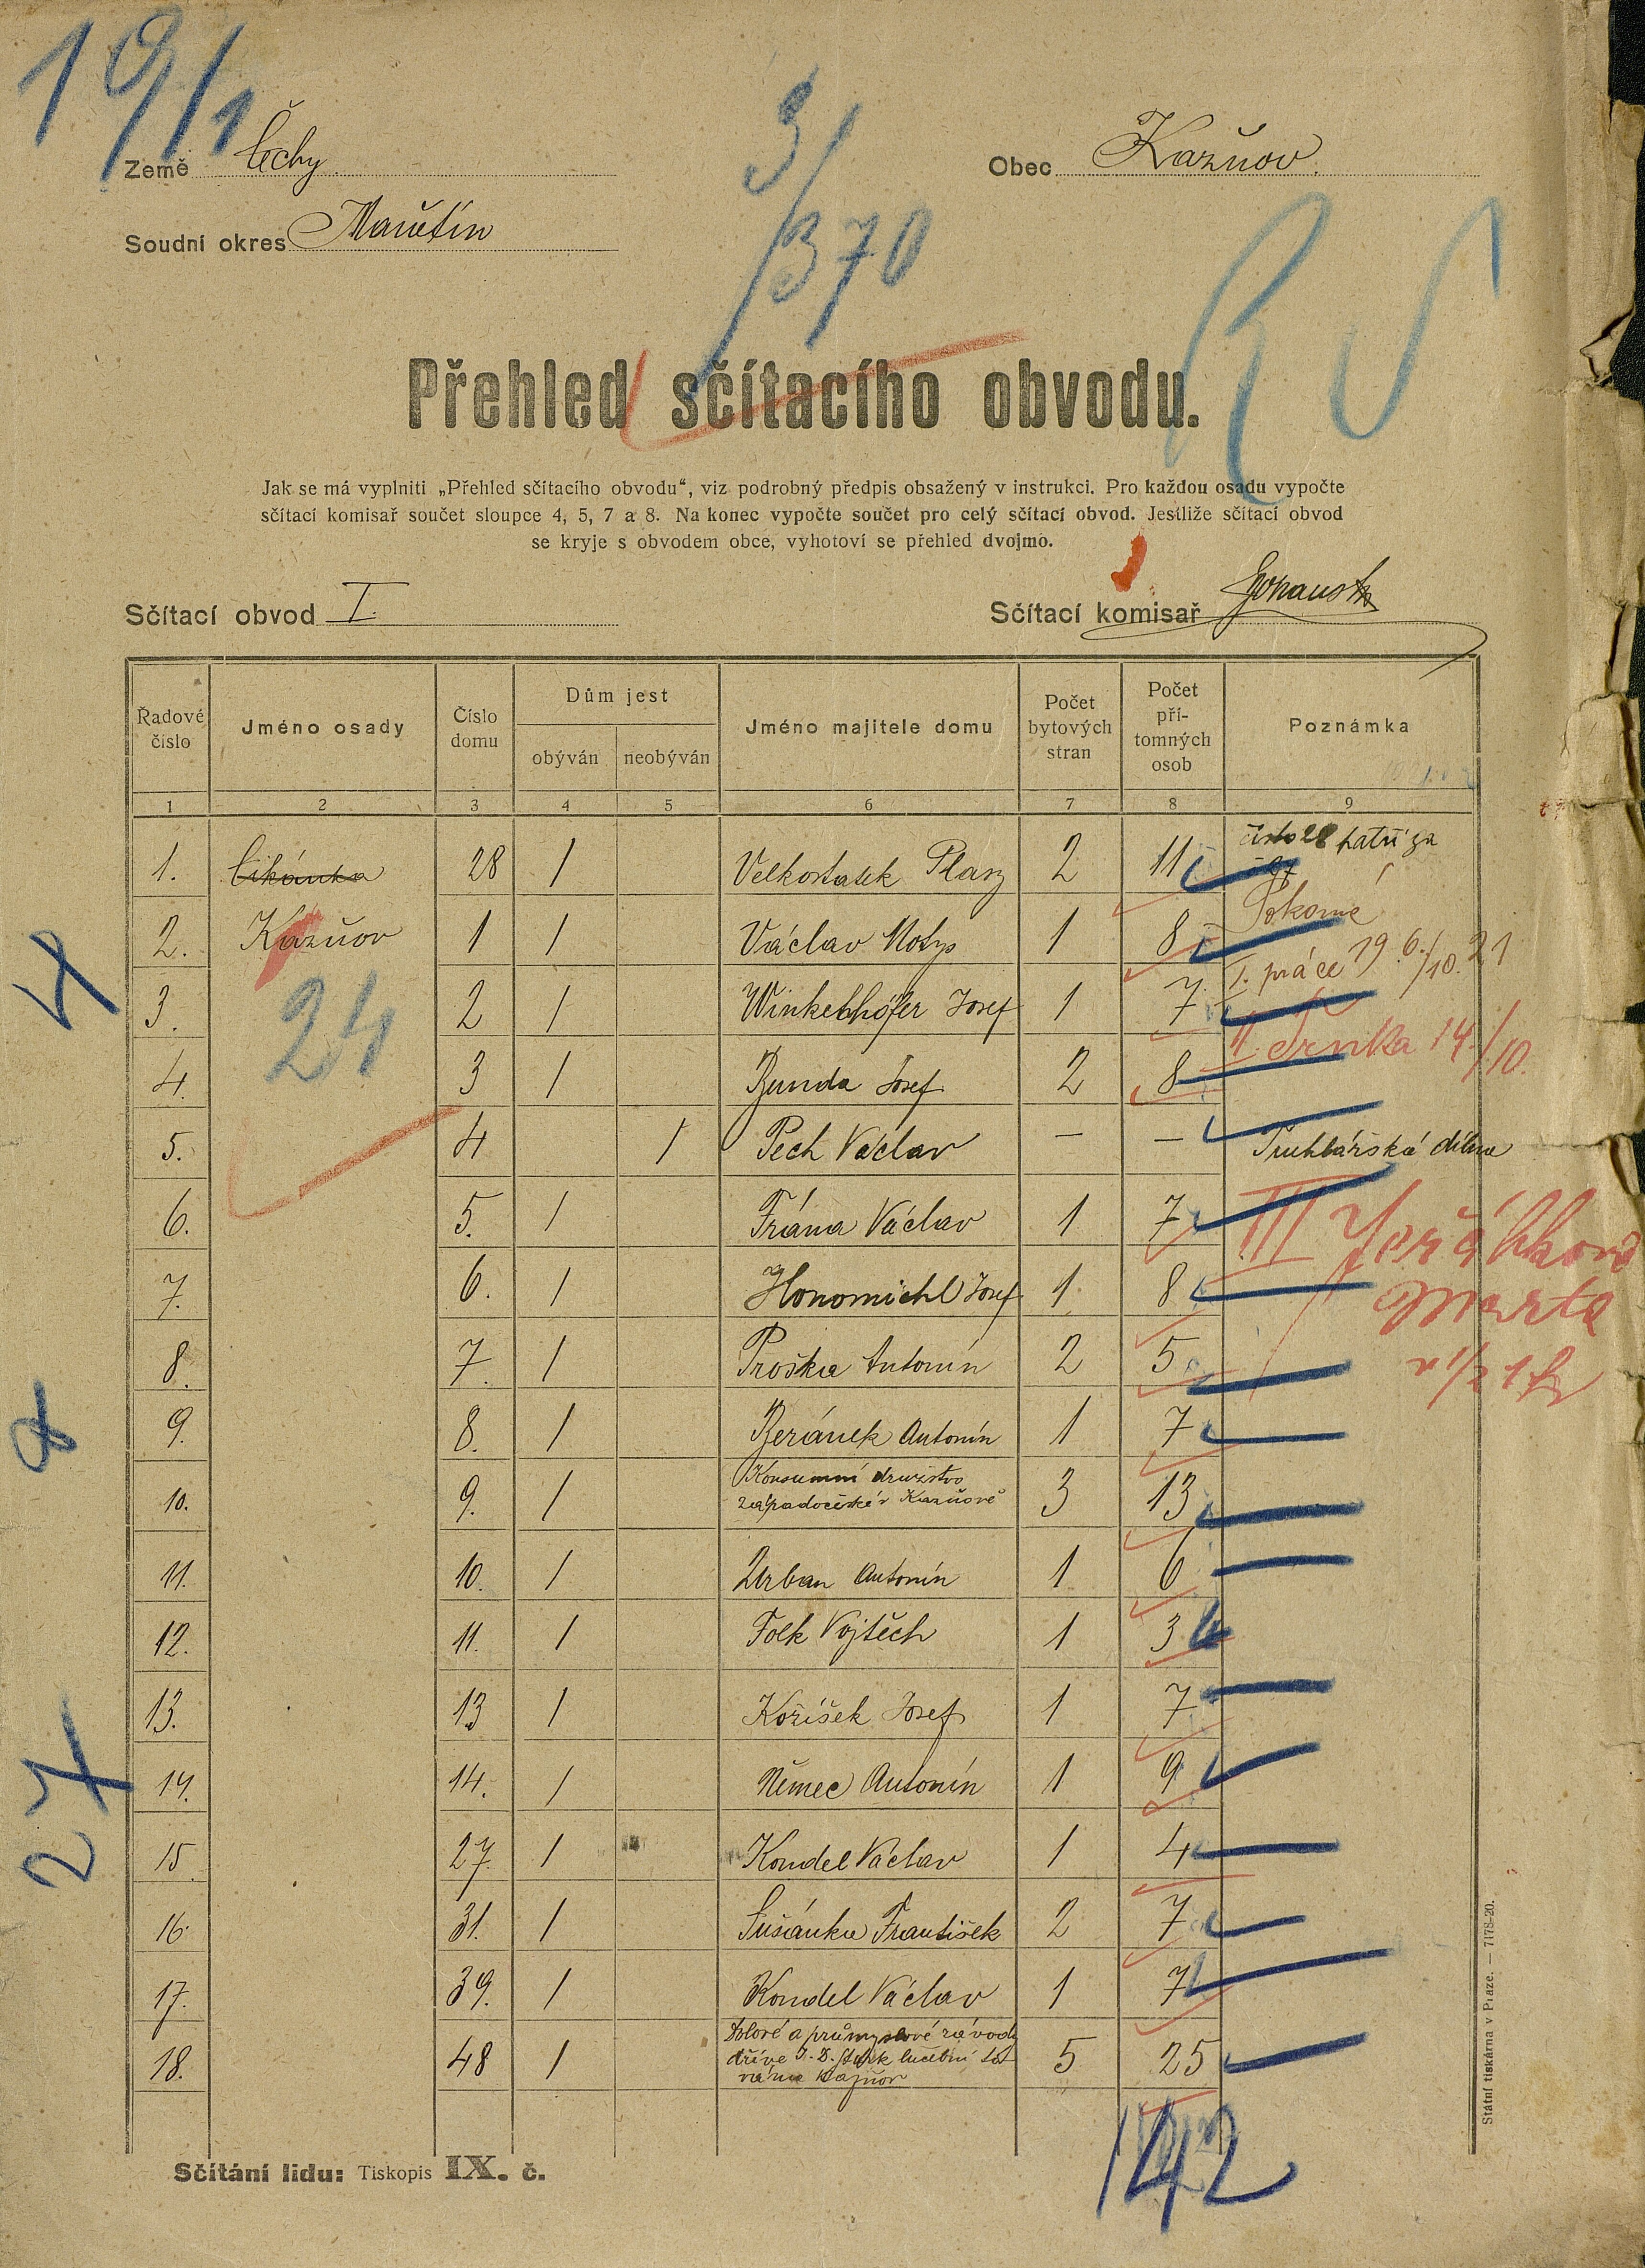 19/1
3/370
Země Čechy
Obec Kažňov.
Soudní okres Manětín
Přehled sčítacího obvodu.
Jak se má vyplniti „Přehled sčítacího obvodu“, viz podrobný předpis obsažený v instrukci. Pro každou osadu vypočte
sčítací komisař součet sloupce 4, 5, 7 a 8. Na konec vypočte součet pro celý sčítací obvod. Jestliže sčítací obvod
se kryje s obvodem obce, vyhotoví se přehled dvojmo.
Sčítací obvod I.
Sčítací komisař
Řadové číslo Jméno osady Číslo domu Dům jest obýván neobýván Jméno majitele domu Počet bytových stran Počet přítomných osob Poznámka
1 2 3 4 5 6 7 8 9
1. Cikánka 28 1 Velkostatek Plasy 2 11 číslo 28 patří za
2. Kažňov 1 1 Václav Motys 1 8 Pokorné
3. 2 1 Winkelhöfer Josef 1 7 I. práce 19 6./10. 21
24
4. 3 1 Bunda Josef 2 8 II. Trnka 14./10.
5. 4 1 Pech Václav — — Truhlářská dílna
6. 5. 1 Frána Václav 1 7 III Jeřábková
7. 6. 1 Honomichl Josef 1 8 Marta
8. 7. 1 Proška Antonín 2 5
9. 8. 1 Beránek Antonín 1 7
10. 9. 1 Konsumní družstvo
západočeské v Kažňově 3 13
11. 10. 1 Urban Antonín 1 6
12. 11. 1 Folk Vojtěch 1 3
13. 13 1 Kožíšek Josef 1 7
14. 14. 1 Němec Antonín 1 9
27
15. 27. 1 Kondel Václav 1 4
16. 31. 1 Sušánka František 2 7
17. 39. 1 Kondel Václav 1 7
18. 48 1 Dolové a průmyslové závody
dříve J. D. Stark lučební to-
várna Kažňov 5 25
142
Sčítání lidu: Tiskopis IX. č.
Státní tiskárna v Praze. — 7178-20.